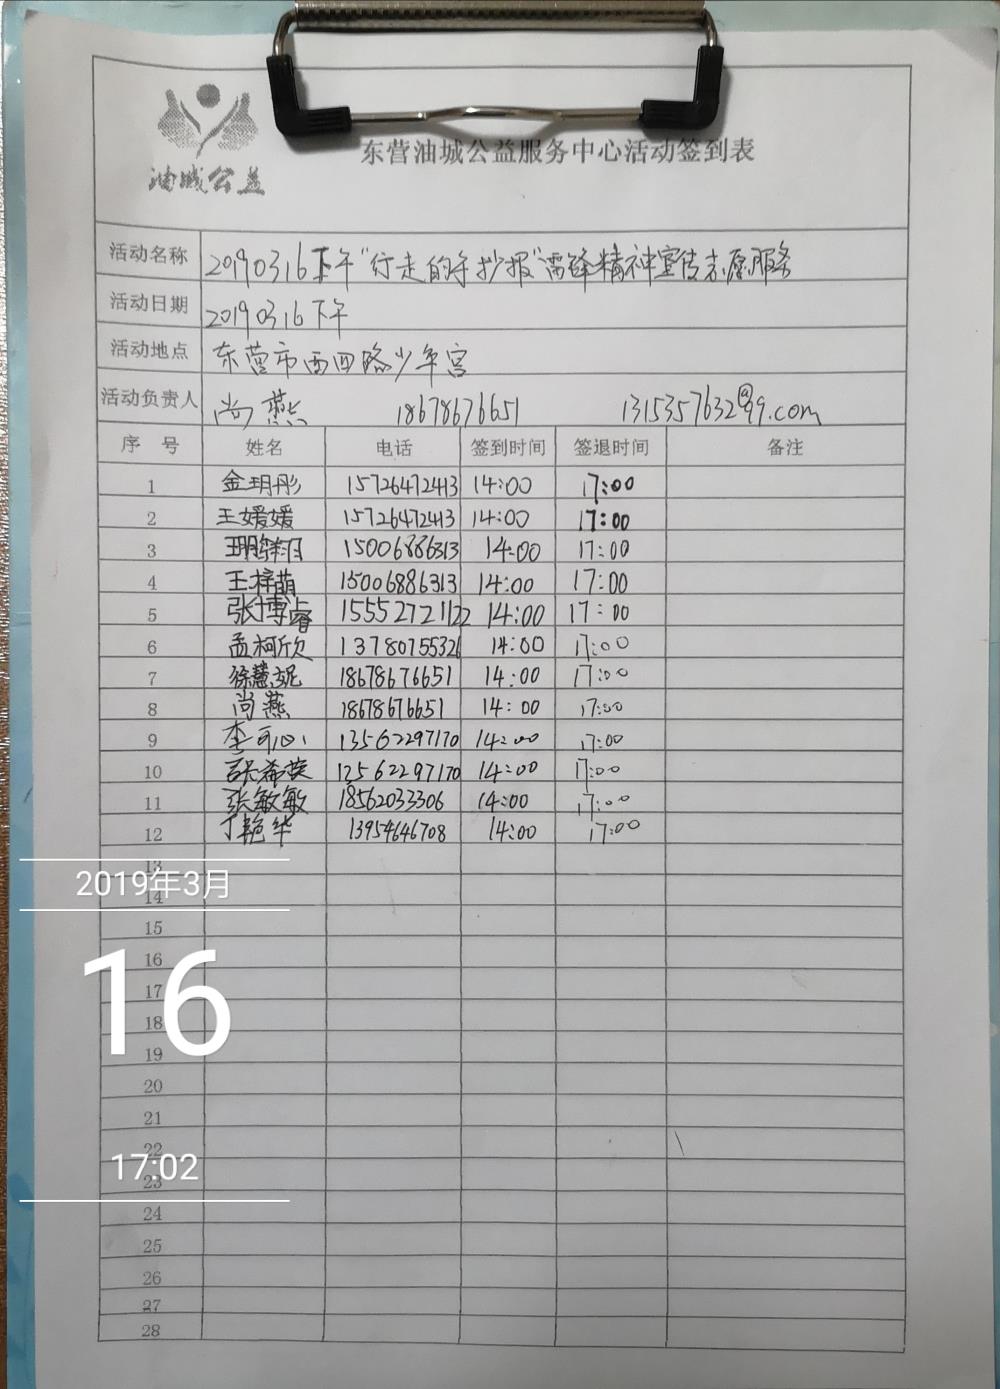 东营油城公益服务中心活动签到表
油城公益
活动名称 20190316下午"行走的手抄报"雷锋精神宣传志愿服务
活动日期 20190316下午
活动地点 东营市西四路少年宫
活动负责人 尚燕 18678676651 1315357632@qq.com
序号 姓名 电话 签到时间 签退时间 备注
1 金玥彤 15726472413 14:00 17:00
2 王媛媛 15726472413 14:00 17:00
3 15006886313 14:00 17:00
4 王梓萌 15006886313 14:00 17:00
5 张博睿 15552721122 14:00 17:00
6 孟柯欣 13780755326 14:00 17:00
7 徐慧妮 18678676651 14:00 17:00
8 尚燕 18678676651 14:00 17:00
9 李可心 13562297170 14:00 17:00
10 张希英 13562297170 14:00 17:00
11 张敏敏 18562033306 14:00 17:00
12 丁艳华 13954646708 14:00 17:00
13
2019年3月
14
15
16
16
17
18
19
20
21
22
17:02
23
24
25
26
27
28